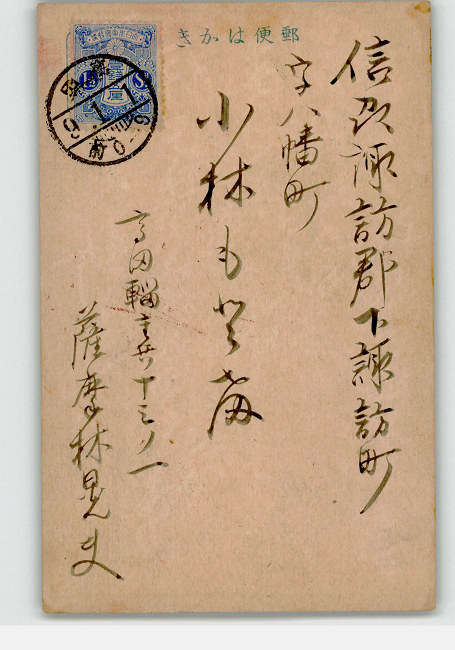 郵便はかき
信州諏訪郡下諏訪町
字八幡町
小林も登様
高田輜重兵十三ノ一
薩摩林晃丈
9.1.1